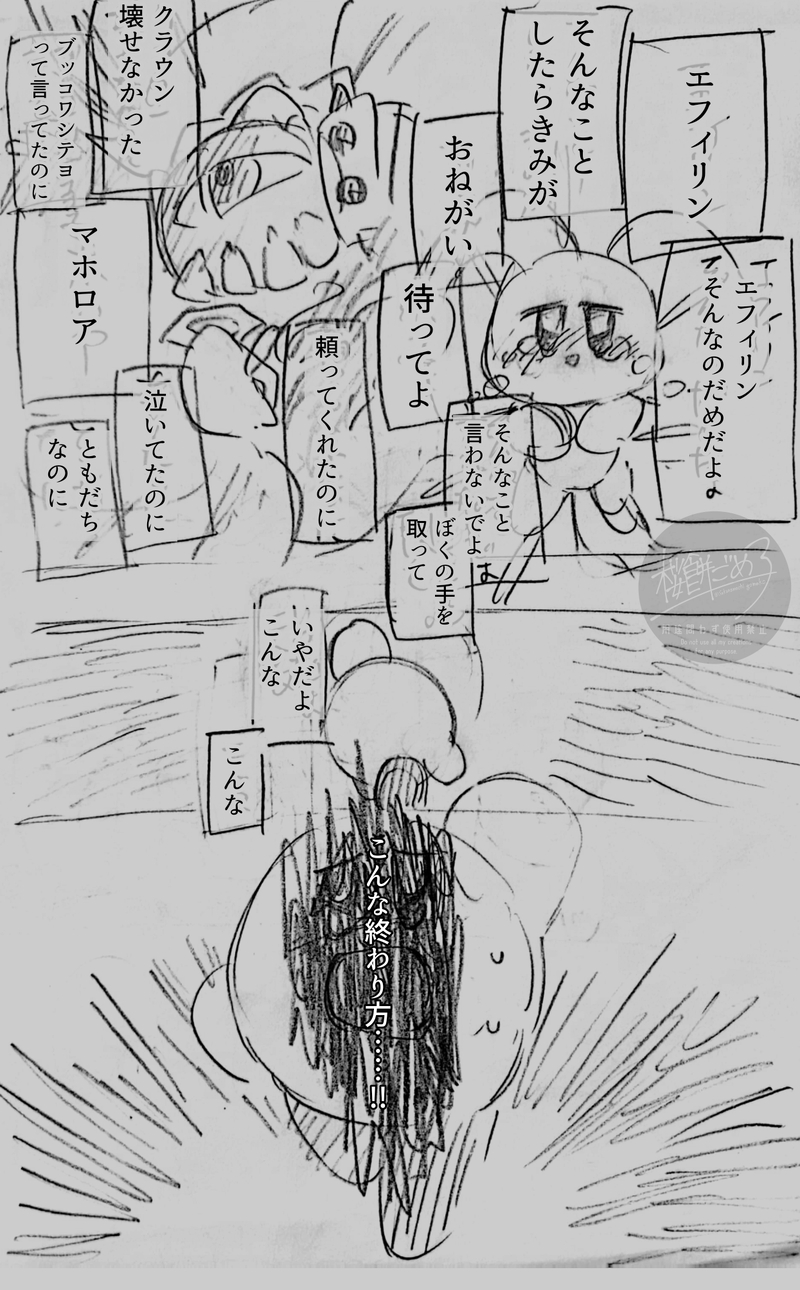 エフィリン
エフィリン
そんなのだめだよ
そんなこと
したらきみが
おねがい
待ってよ
そんなこと
言わないでよ
ぼくの手を
取って
クラウン
壊せなかった
ブッコワシテヨ
って言ってたのに
マホロア
頼ってくれたのに
泣いてたのに
ともだち
なのに
いやだよ
こんな
こんな
こんな終わり方……!!